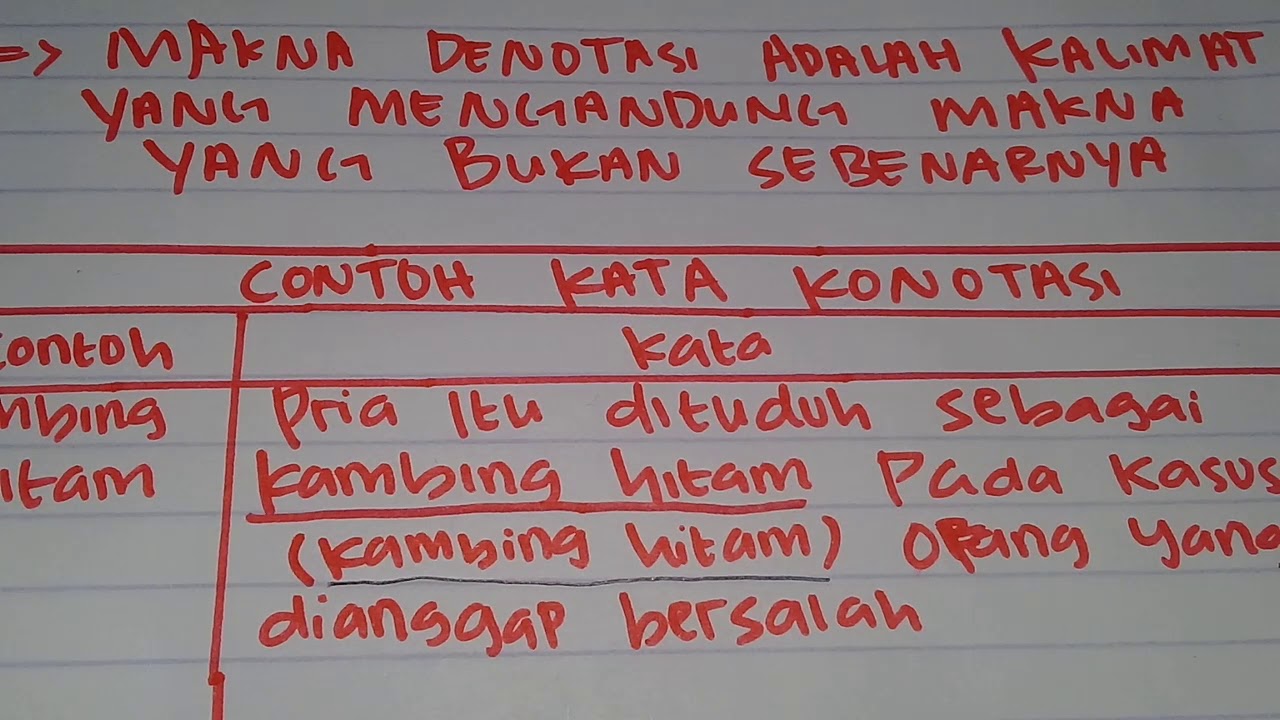 => MAKNA DENOTASI ADALAH KALIMAT
YANG MENGANDUNG MAKNA
YANG BUKAN SEBENARNYA
CONTOH KATA KONOTASI
contoh kata
mbing Pria Itu dituduh sebagai
itam kambing hitam Pada kasus
(kambing hitam) orang yang
dianggap bersalah